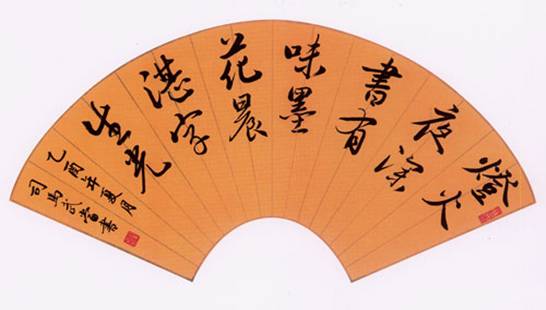 燈火
夜深
書有
味墨
花晨
湛字
生光
乙酉年夏月
司馬武當書